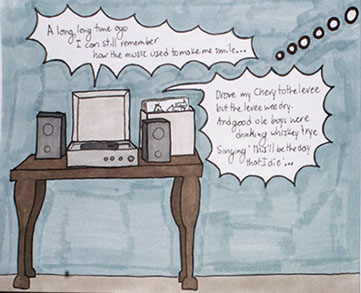 A long, long time ago
I can still remember
how the music used to make me smile...
Drove my Chevy to the levee
but the levee was dry.
And good ole boys were
drinking whiskey 'n rye
Singing 'this'll be the day
that I die'...